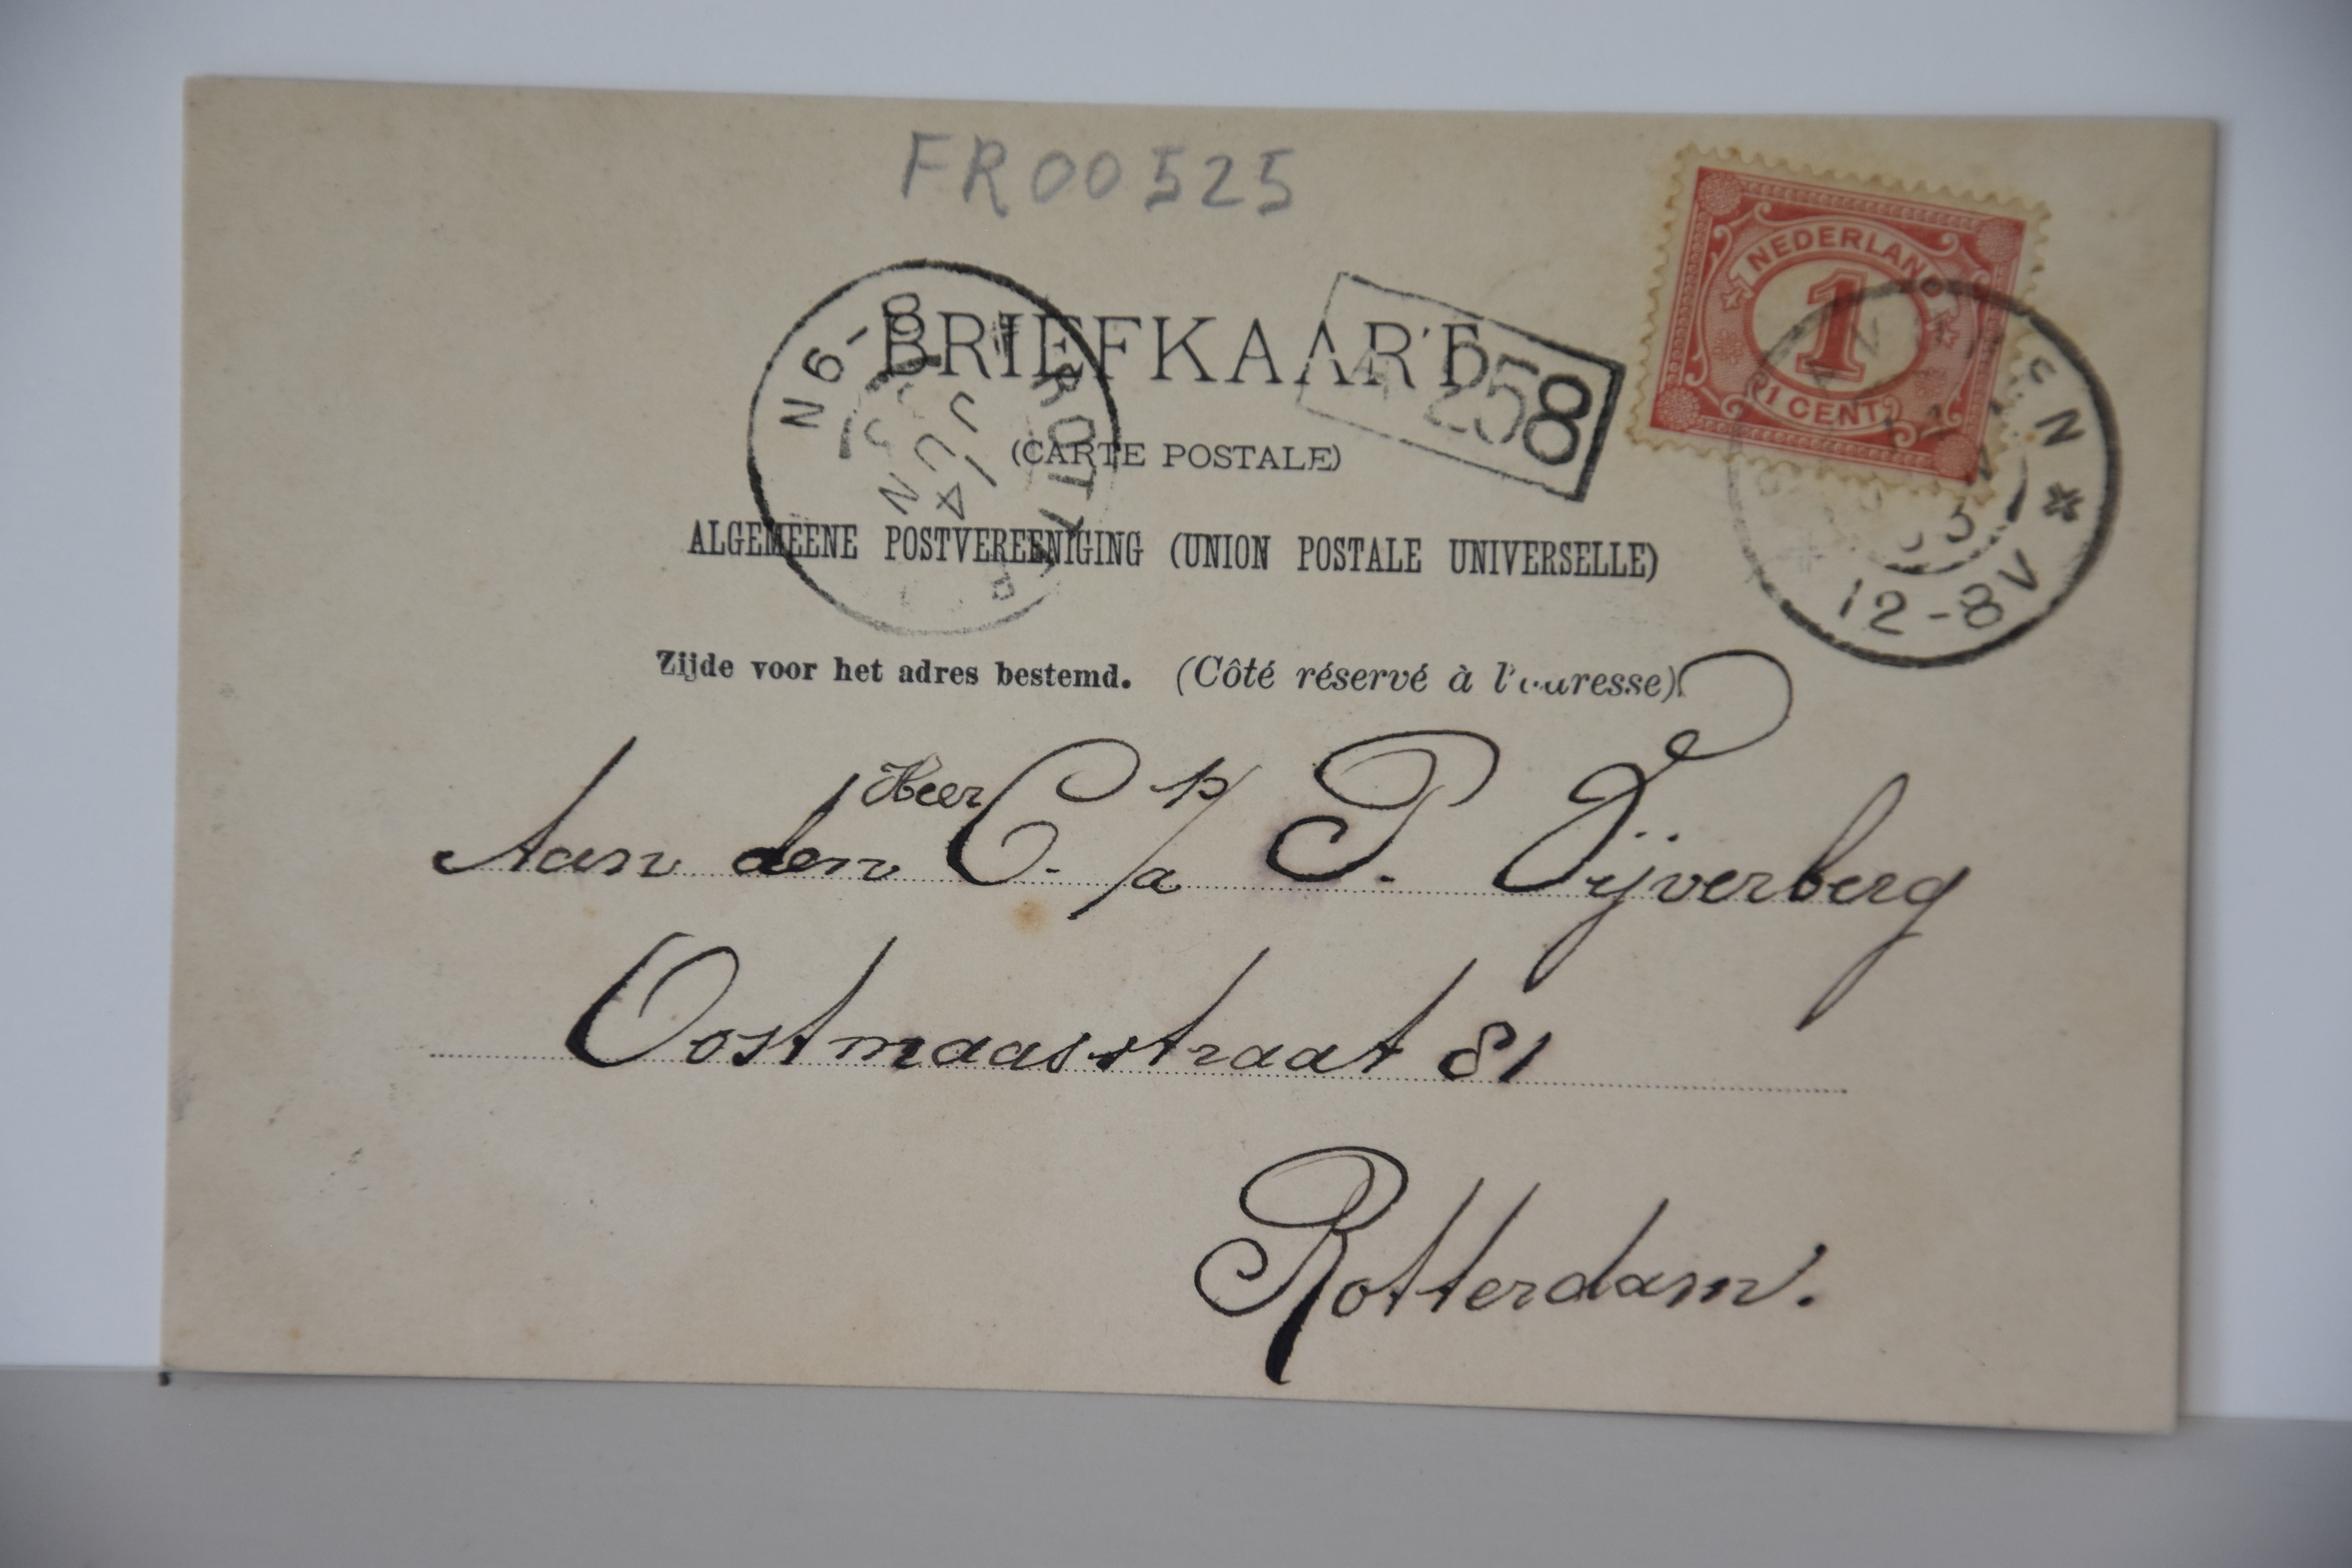 FR00525
NEDERLAND
1
1 CENT
BRIEFKAART
258
8-9N
14 JUN
ROTT
(CARTE POSTALE)
ALGEMEENE POSTVEREENIGING (UNION POSTALE UNIVERSELLE)
12-8V
Zijde voor het adres bestemd. (Côté réservé à l'adresse)
Aan den Heer C. p/a P. Vijverberg
Oostmaasstraat 81
Rotterdam.